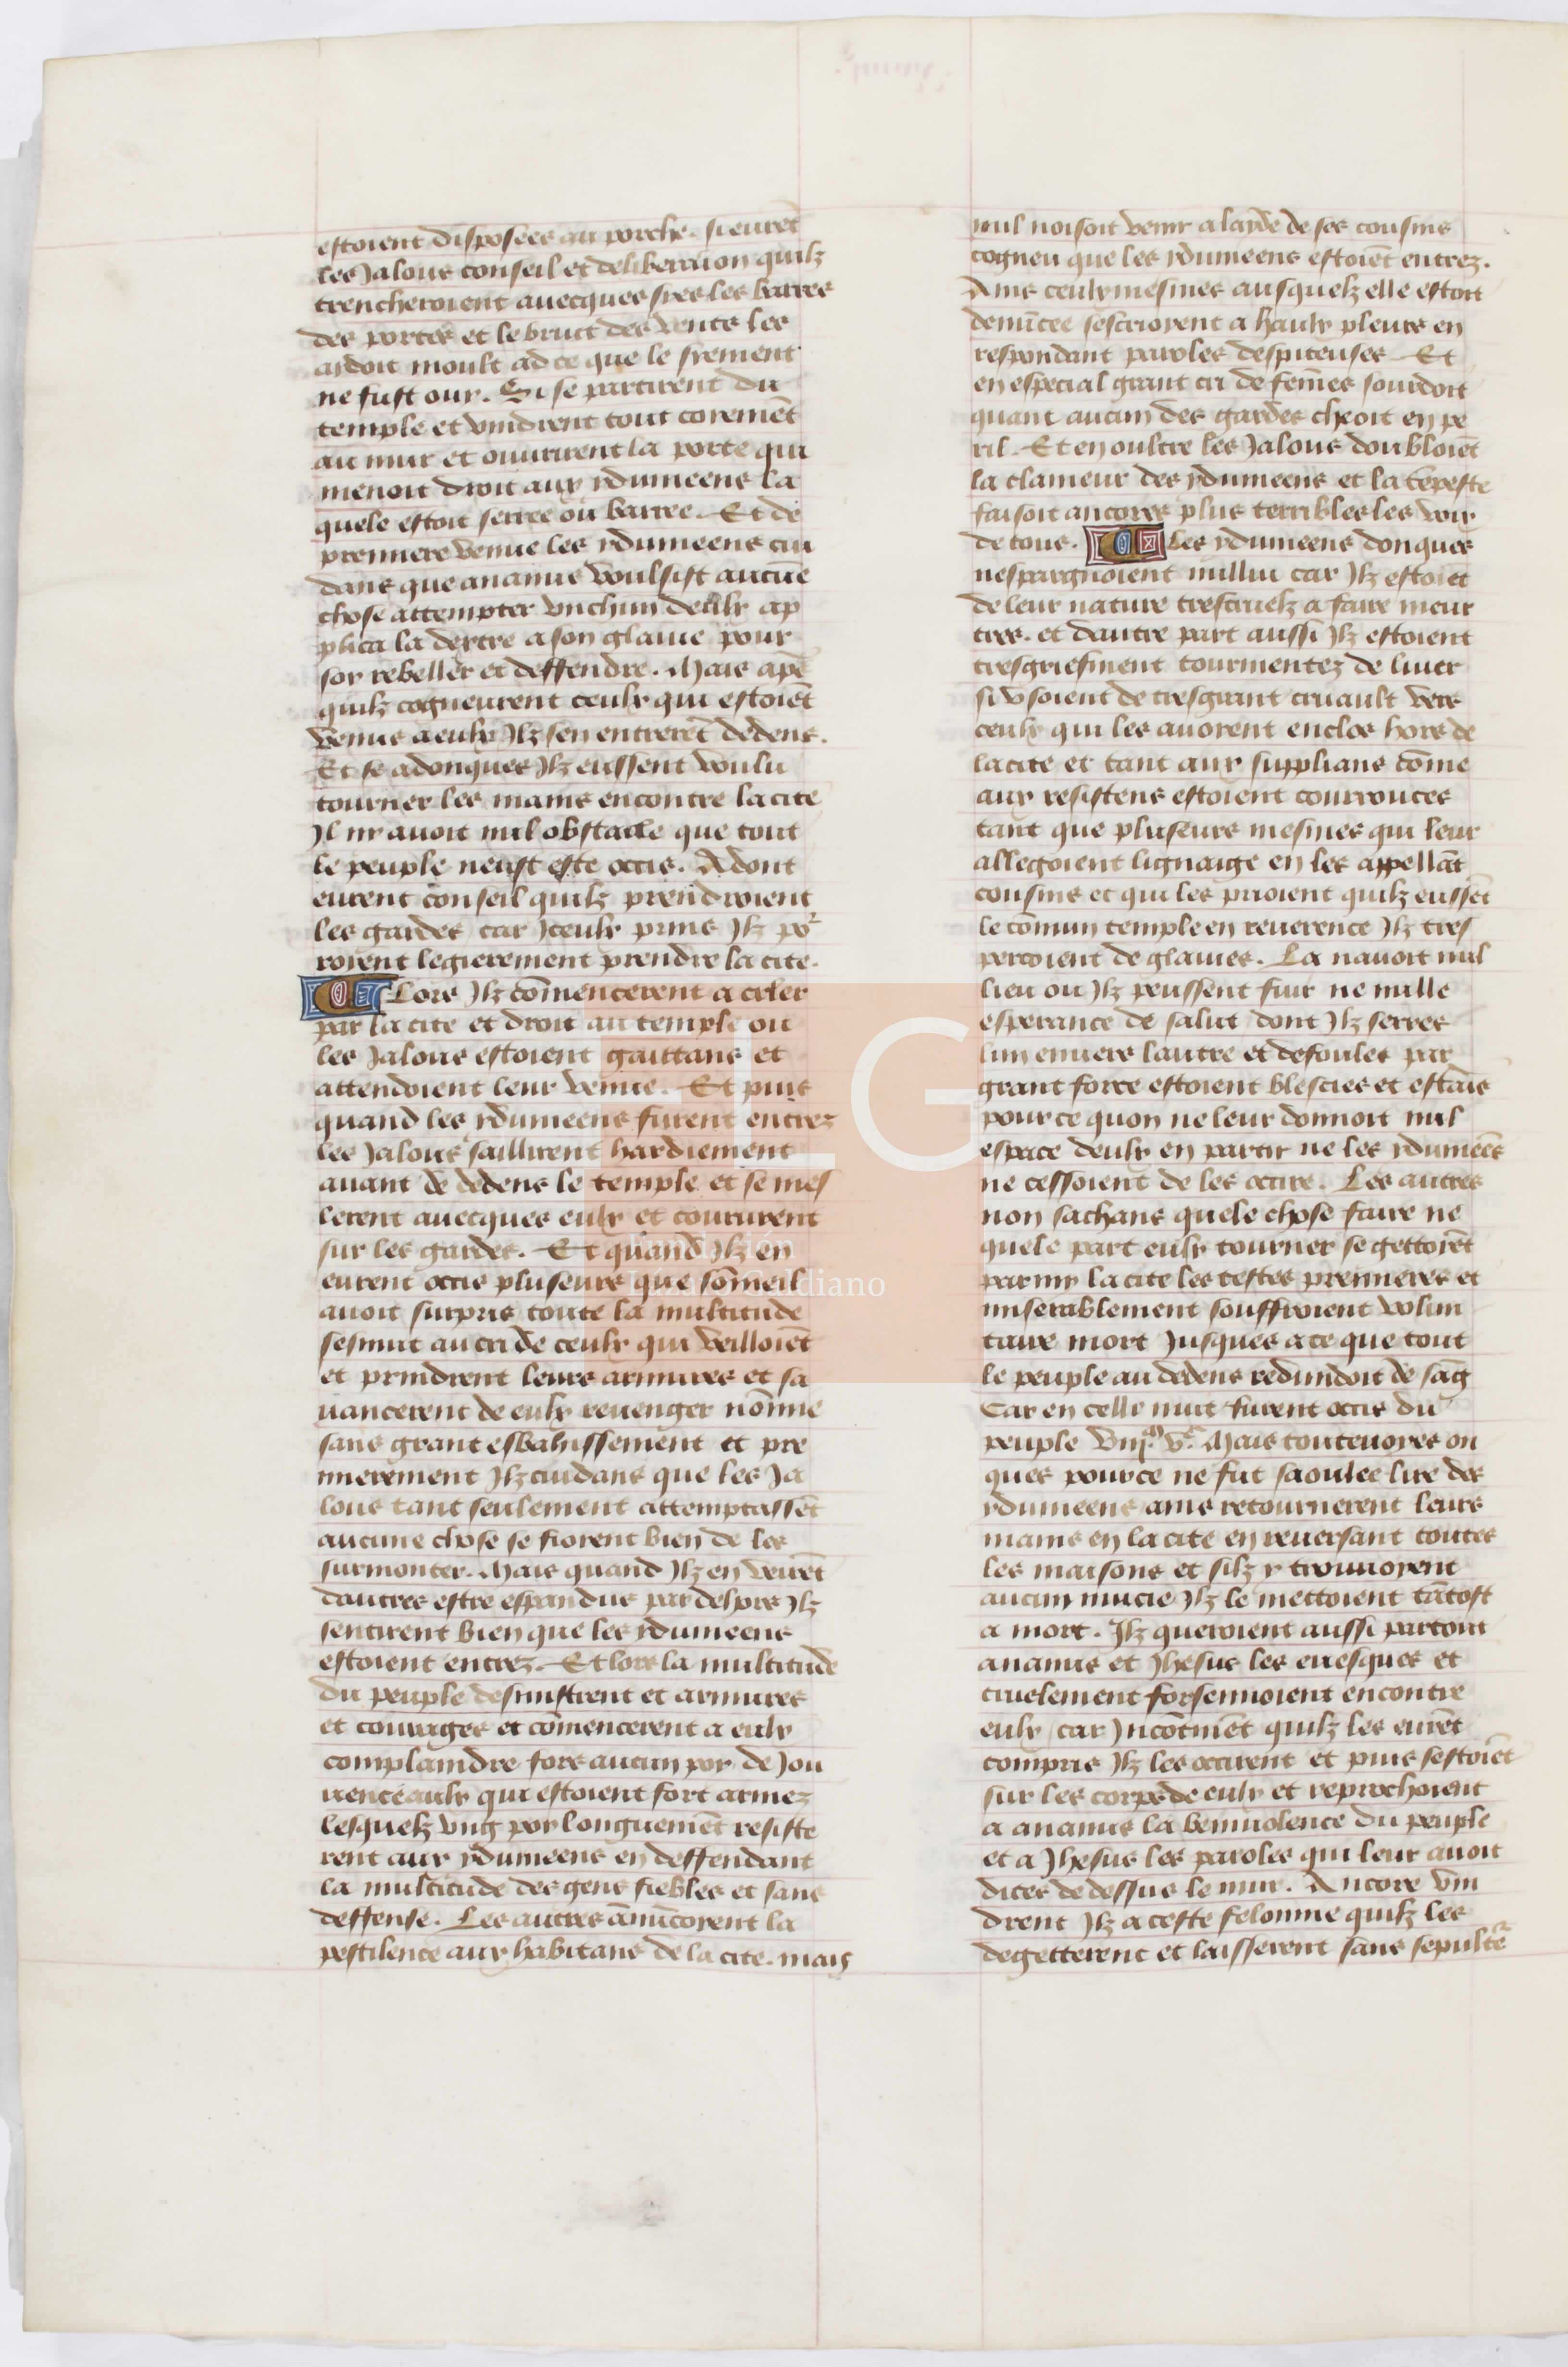 estoient disposees au porche. si eurēt
les Jalous conseil et deliberacion quilz
trencheroient auecques sies les barres
des portes et le bruit des vents les
aidoit moult ad ce que le siement
ne fust ouy. Si se partirent du
temple et vindrent tout coiemēt
au mur et ouurirent la porte qui
menoit droit aux ydumeens la
quele estoit serree ou barree. Et de
premiere venue les ydumeens cui
dans que ananus voulsist aucūe
chose attempter vnchun deulx ap
plica la dextre a son glaiue pour
soy rebeller et deffendre. Mais apē
quilz cogneurent ceulx qui estoiēt
venus a eulx Ilz sen entrerēt dedens.
Et se adonques Ilz eussent voulu
tourner les mains encontre la cite
Il ny auoit nul obstacle que tout
le peuple neust este occis. Adont
eurent conseil quilz prendroient
les gardes car Iceulx prins Ilz por
roient legierement prendre la cite.
Lors Ilz cōmencerent a aler
par la cite et droit au temple ou
les Jalous estoient gaittans et
attendoient leur venue. Et puis
quand les ydumeens furent entrez
les Jalous saillirent hardiement
auant de dedens le temple et se mes
lerent auecques eulx et coururent
sur les gardes. Et quand Ilz en
eurent occis pluseurs que sōmeil
auoit surpris toute la multitude
sesmut au cri de ceulx qui veilloiēt
et prindrent leurs armures et sa
uancerent de eulx reuenger nōmie
sans grant esbahissement et pre
mierement Ilz cuidans que les Ja
lous tant seulement attemptassēt
aucune chose se fioient bien de les
surmonter. Mais quand Ilz en veirēt
dautres estre espandus par dehors Ilz
sentirent bien que les ydumeens
estoient entrez. Et lors la multitude
du peuple desmistrent et armures
et courages et cōmencerent a eulx
complaindre fors aucun poy de Jou
uenceaulx qui estoient fort armez
lesquelz vng poy longuemēt resiste
rent aux ydumeens en deffendant
la multitude des gens fiebles et sans
deffense. Les autres ānūcoient la
pestilence aux habitans de la cite. mais
nul nosoit venir a layde de ses cousins
cogneu que les ydumeens estoiēt entrez.
Ains ceulx mesmes ausquelz elle estoit
denūcee sescrioient a haulx pleurs en
respondant paroles despiteuses Et
en especial grant cri de fēmes sourdoit
quant aucun des gardes cheoit en pe
ril. Et en oultre les Jalous doubloiēt
la clameur des ydumeens et la tēpeste
faisoit ancores plus terribles les voix
de tous. Les ydumeens donques
nespargnoient nulluy car Ilz estoiēt
de leur nature trescruelz a faire meur
tres. et dautre part aussi Ilz estoient
tresgriefment tourmentez de liuer
si vsoient de tresgrant cruaulte vers
ceulx qui les auoient enclos hors de
la cite et tant aux supplians cōme
aux resistens estoient courrouces
tant que pluseurs mesmes qui leur
allegoient lignaige en les appellāt
cousins et qui les prioient quilz eussēt
le cōmun temple en reuerence Ilz tres
percoient de glaiues. La nauoit nul
lieu ou Ilz peussent fuir ne nulle
esperance de salut dont Ilz serres
lun enuers lautre et defoules par
grant force estoient blescies et estāis
pour ce quon ne leur donnoit nul
espace deulx en partir ne les ydumeēs
ne cessoient de les occire. Les autres
non sachans quele chose faire ne
quele part eulx tourner se gettoiēt
parmy la cite les testes premieres et
miserablement souffroient volun
taire mort Jusques a ce que tout
le peuple au dedens redundoit de sāg
Car en celle nuit furent occis du
peuple viijm vc. Mais toutevoyes on
ques pour ce ne fut saoulee lire des
ydumeens ains retournerent leurs
mains en la cite en reuersant toutes
les maisons et silz y trouuoient
aucun mucie Ilz le mettoient tātost
a mort. Ilz queroient aussi partout
ananus et Jhesus les euesques et
cruelement forsennoient encontre
eulx car Incōtinēt quilz les eurēt
compris Ilz les occirent et puis sestoiēt
sur les corps de eulx et reprochoient
a ananus la beniuolence du peuple
et a Jhesus les paroles qui leur auoit
dites de dessus le mur. Ancore vin
drent Ilz a ceste felonnie quilz les
degetterent et laisserent sans sepultē
Fundación
Lázaro Galdiano
FLG